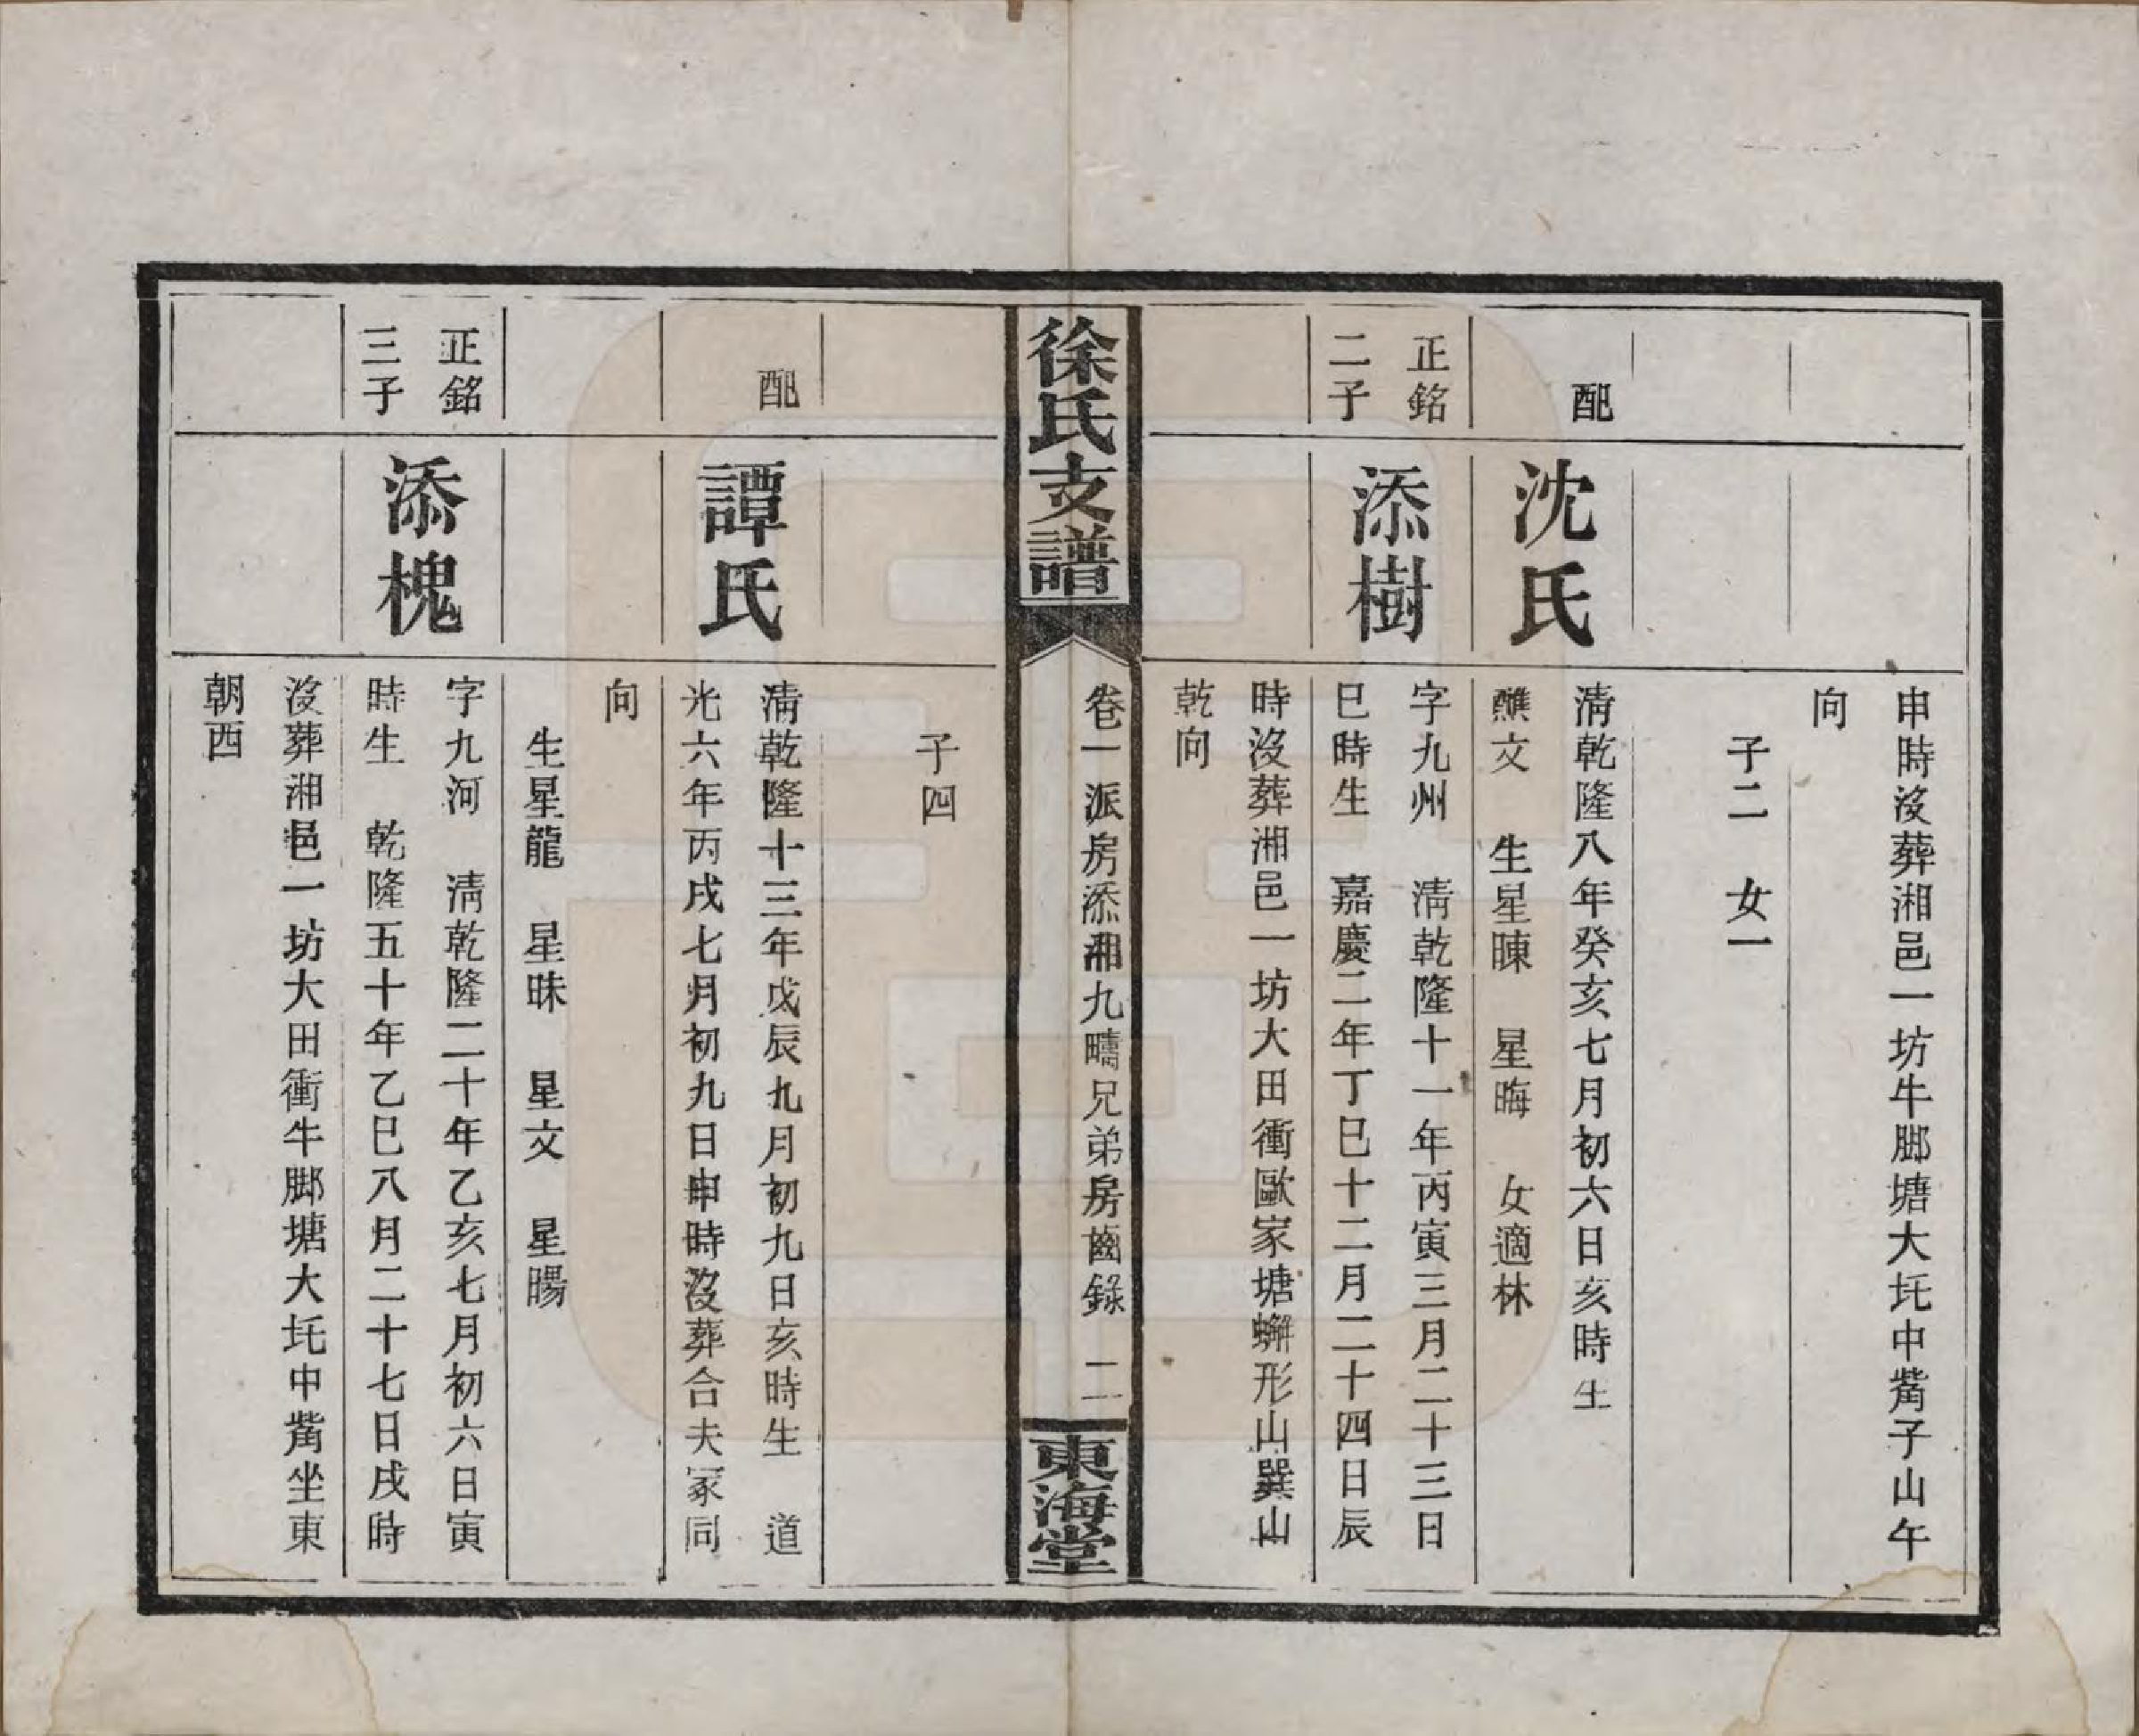 申時沒葬湘邑一坊牛腳塘大坵中觜子山午
向
子二 女一
配
沈氏
清乾隆八年癸亥七月初六日亥時生
醮文 生星暕 星晦 女適林
正銘
二子
添樹
字九州 清乾隆十一年丙寅三月二十三日
巳時生 嘉慶二年丁巳十二月二十四日辰
時沒葬湘邑一坊大田衝歐家塘蠏形山巽山
乾向
徐氏支譜
卷一 派房添湘九疇兄弟房齒錄 二
東海堂
子四
配
譚氏
清乾隆十三年戊辰九月初九日亥時生 道
光六年丙戌七月初九日申時沒葬合夫冢同
向
生星龍 星昧 星文 星暘
正銘
三子
添槐
字九河 清乾隆二十年乙亥七月初六日寅
時生 乾隆五十年乙巳八月二十七日戌時
沒葬湘邑一坊大田衝牛腳塘大坵中觜坐東
朝西